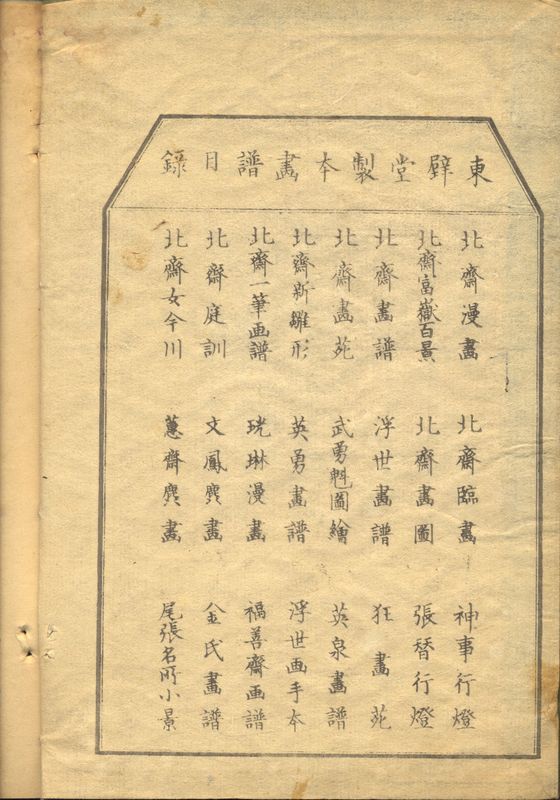 東壁堂製本畫譜目録
北齋漫畫　北齋臨畫　神事行燈
北齋富嶽百景　北齋畫圖　張替行燈
北齋畫譜　浮世畫譜　狂畫苑
北齋畫苑　武勇魁圖繪　英泉畫譜
北齋新雛形　英勇畫譜　浮世画手本
北齋一筆画譜　珖琳漫畫　福善齋画譜
北齋庭訓　文鳳麁畫　金氏畫譜
北齋女今川　蕙齋麁畫　尾張名所小景